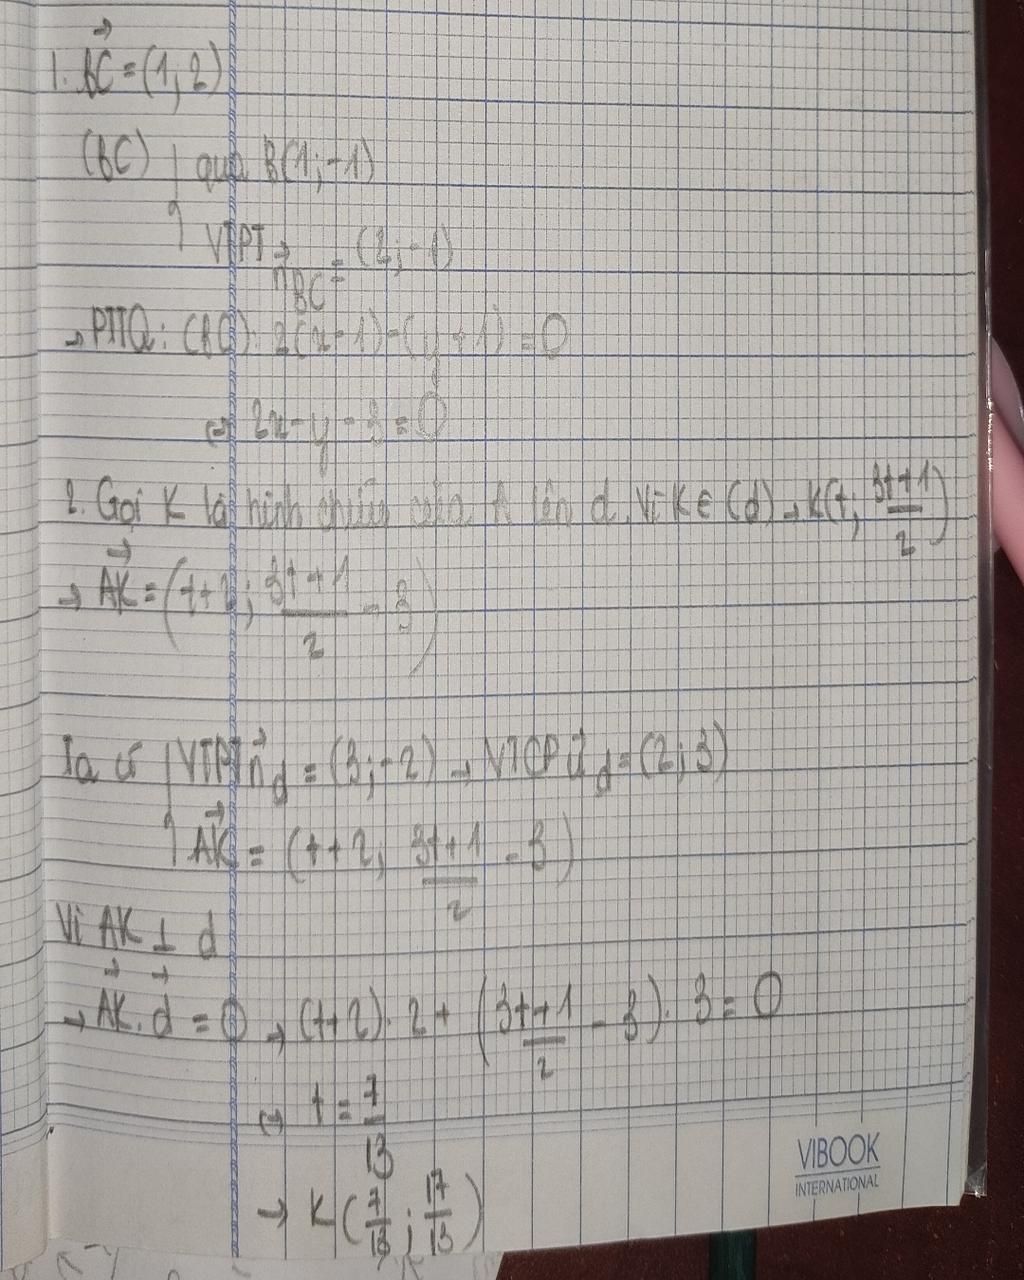 1. BC⃗ = (1; 2)
(BC) { qua B(1; -1)
VTPT n⃗_BC = (2; -1)
→ PTTQ: (BC): 2(x-1)-(y+1) = 0
⇔ 2x - y - 3 = 0
2. Gọi K là hình chiếu của A lên d. Vì K ∈ (d) → K(t; (3t+1)/2)
→ AK⃗ = (t+2; (3t+1)/2 - 3)
Ta có { VTPT n⃗_d = (3; -2) → VTCP u⃗_d = (2; 3)
AK⃗ = (t+2; (3t+1)/2 - 3)
Vì AK ⊥ d
→ AK⃗. d⃗ = 0 → (t+2). 2 + ((3t+1)/2 - 3). 3 = 0
⇔ t = 7/13
→ K(7/13; 17/13)
VIBOOK
INTERNATIONAL